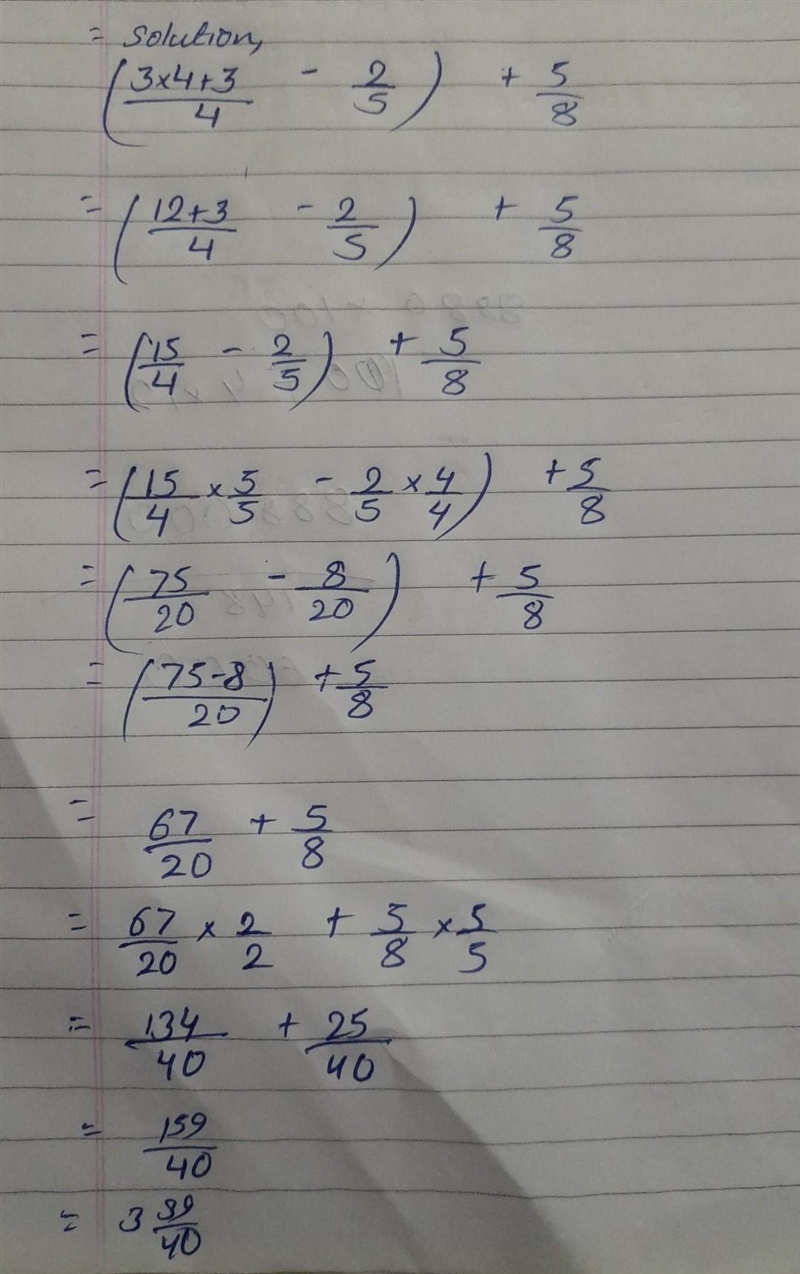 = Solution,
(3×4+3/4 - 2/5) + 5/8
= (12+3/4 - 2/5) + 5/8
= (15/4 - 2/5) + 5/8
= (15/4 × 5/5 - 2/5 × 4/4) + 5/8
= (75/20 - 8/20) + 5/8
= (75-8/20) + 5/8
= 67/20 + 5/8
= 67/20 × 2/2 + 5/8 × 5/5
= 134/40 + 25/40
= 159/40
= 3 39/40